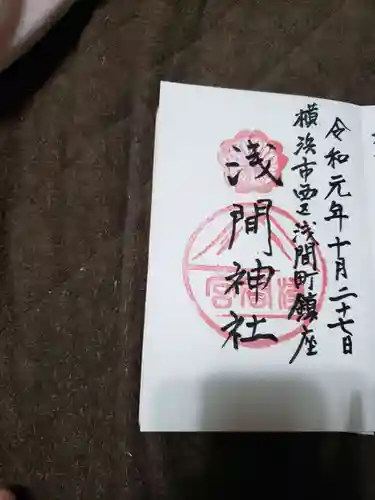 令和元年十月二十七日
横浜市西区浅間町鎮座
浅間神社